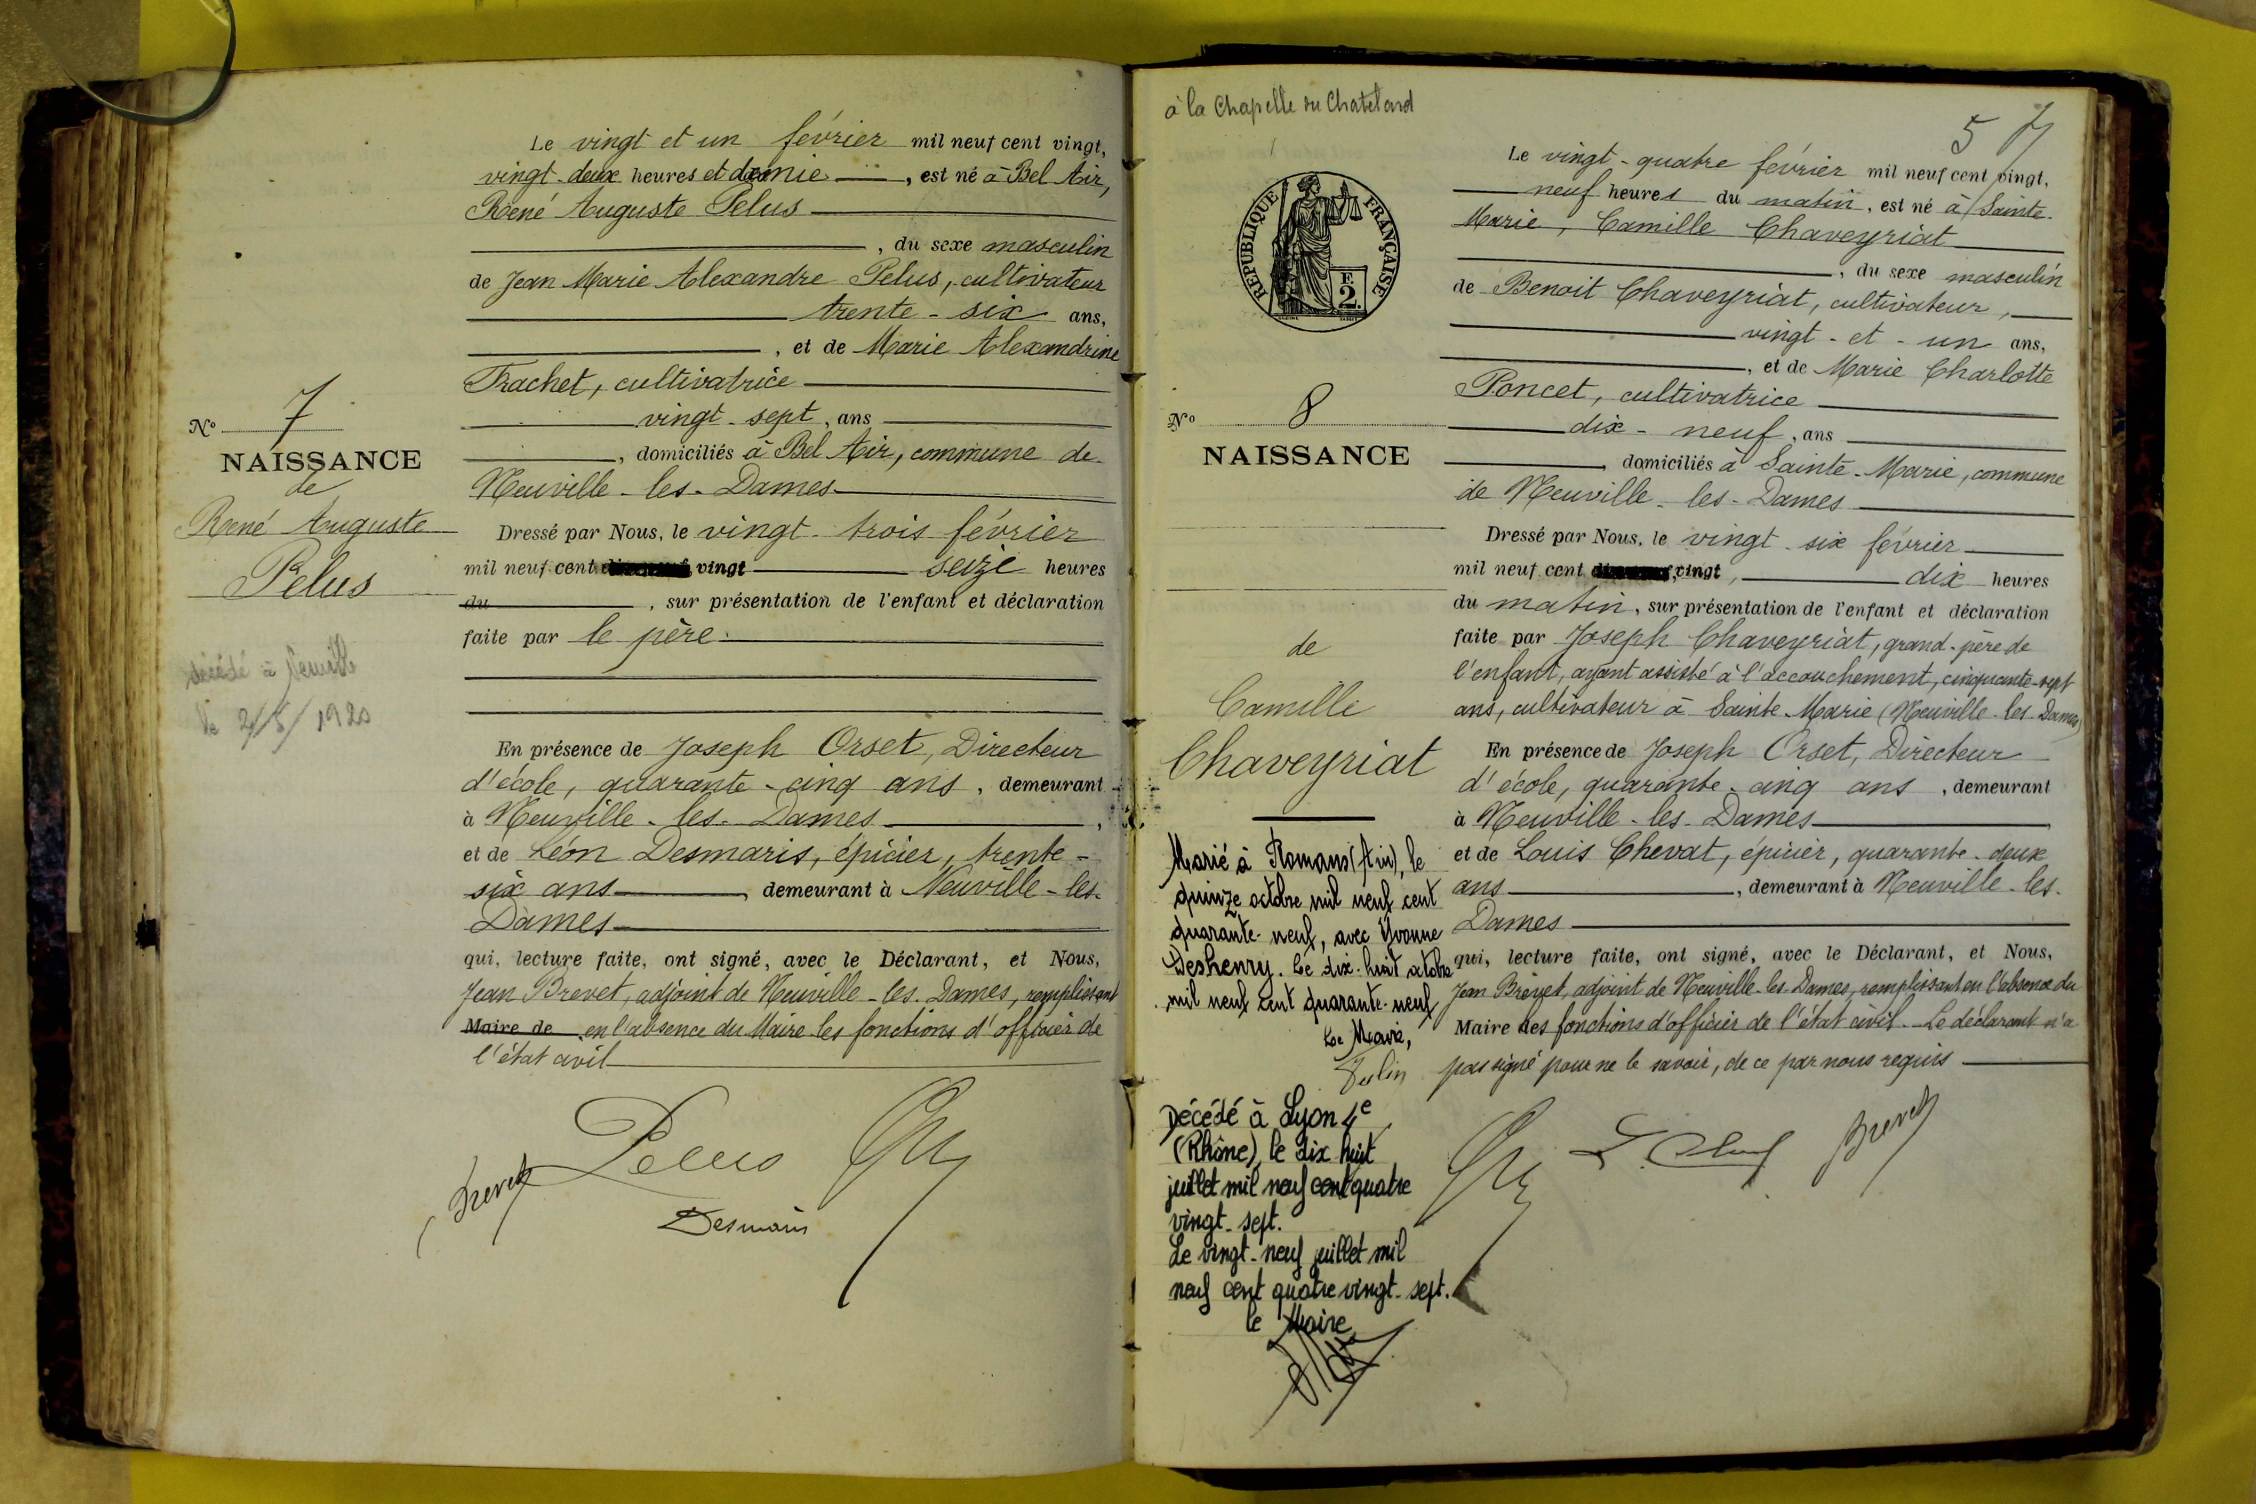 Le vingt et un février mil neuf cent vingt,
vingt-deux heures et demie, est né à Bel Air,
René Auguste Pelus
, du sexe masculin
de Jean Marie Alexandre Pelus, cultivateur
trente-six ans,
, et de Marie Alexandrine
Trachet, cultivatrice
vingt-sept, ans
, domiciliés à Bel Air, commune de
Neuville-les-Dames
Nº 7
NAISSANCE
de
René Auguste
Pelus
décédé à Neuville
le 2/8/1920
Dressé par Nous, le vingt-trois février
mil neuf cent vingt seize heures
du , sur présentation de l'enfant et déclaration
faite par le père.
En présence de Joseph Orset, Directeur
d'école, quarante-cinq ans, demeurant
à Neuville-les-Dames,
et de Léon Desmaris, épicier, trente-
six ans, demeurant à Neuville-les-
Dames
qui, lecture faite, ont signé, avec le Déclarant, et Nous,
Jean Brevet, adjoint de Neuville-les-Dames, remplissant
Maire de en l'absence du Maire les fonctions d'officier de
l'état civil
Brevet Pelus
Desmaris
à la Chapelle du Chatelard
5 7
RÉPUBLIQUE FRANÇAISE
F.
2.
Nº 8
NAISSANCE
de
Camille
Chaveyriat
Marié à Romans (Ain), le
quinze octobre mil neuf cent
quarante-neuf, avec Yvonne
Deshenry. Le dix-huit octobre
mil neuf cent quarante-neuf
Le Maire,
Décédé à Lyon 4e
(Rhône), le dix huit
juillet mil neuf cent quatre
vingt-sept.
Le vingt-neuf juillet mil
neuf cent quatre vingt-sept.
le Maire
Le vingt-quatre février mil neuf cent vingt,
neuf heures du matin, est né à Sainte-
Marie, Camille Chaveyriat
, du sexe masculin
de Benoit Chaveyriat, cultivateur,
vingt-et-un ans,
, et de Marie Charlotte
Poncet, cultivatrice
dix-neuf, ans
, domiciliés à Sainte-Marie, commune
de Neuville-les-Dames
Dressé par Nous, le vingt-six février
mil neuf cent vingt, dix heures
du matin, sur présentation de l'enfant et déclaration
faite par Joseph Chaveyriat, grand-père de
l'enfant, ayant assisté à l'accouchement, cinquante-sept
ans, cultivateur à Sainte-Marie (Neuville-les-Dames)
En présence de Joseph Orset, Directeur
d'école, quarante-cinq ans, demeurant
à Neuville-les-Dames
et de Louis Chevat, épicier, quarante-deux
ans, demeurant à Neuville-les-
Dames
qui, lecture faite, ont signé, avec le Déclarant, et Nous,
Jean Brevet, adjoint de Neuville-les-Dames, remplissant en l'absence du
Maire les fonctions d'officier de l'état civil. Le déclarant n'a
pas signé pour ne le savoir, de ce par nous requis
Brevet